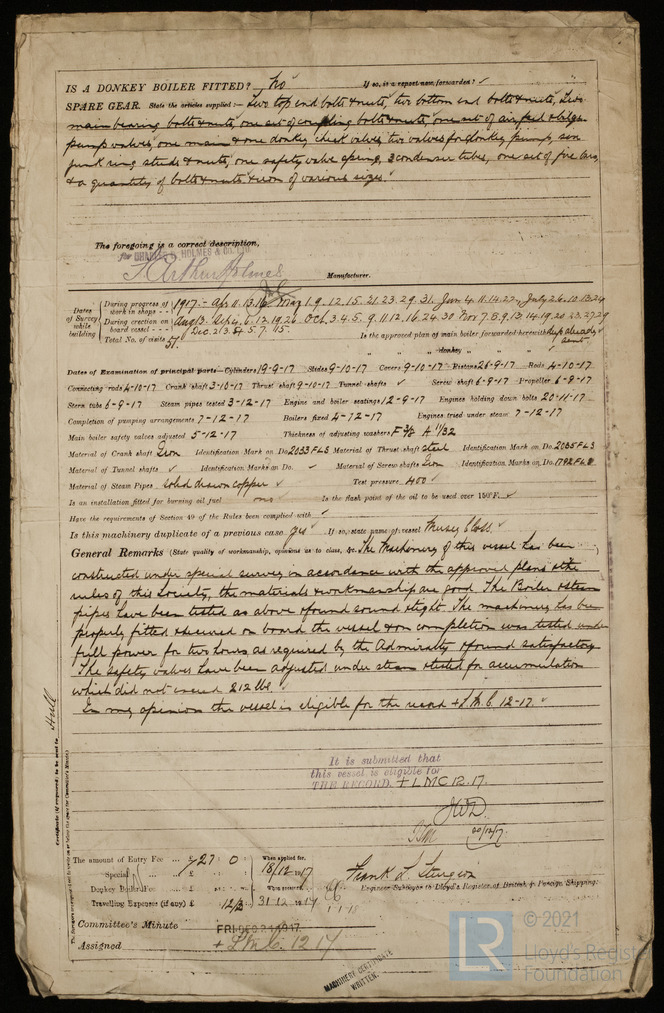 IS A DONKEY BOILER FITTED? No If so, is a report now forwarded? ✓
SPARE GEAR. State the articles supplied:— Two top end bolts & nuts, two bottom end bolts & nuts, two
main bearing bolts & nuts, one set of coupling bolts & nuts, one set of air, feed & bilge
pump valves, one main & one donkey check valves, two valves for donkey pump, six
junk ring studs & nuts, one safety valve spring, 3 condenser tubes, one set of fire bars,
& a quantity of bolts & nuts & iron of various sizes.
The foregoing is a correct description,
for CHARLES D. HOLMES & CO. LTD
Arthur Holmes Manufacturer.
Dates of Survey while building
During progress of work in shops - - 1917:- Apr 11. 13. 16. May 1. 9. 12. 15. 21. 23. 29. 31. Jun 4. 11. 14. 22. July 2. 6. 10. 13. 24
During erection on board vessel - - - Aug 13. Sep 4. 6. 12. 19. 26. Oct 3. 4. 5. 9. 11. 12. 16. 24. 30 Nov 7. 8. 9. 13. 14. 19. 20. 23. 27. 29
Dec. 2. 3. 4. 5. 7. 15.
Total No. of visits 57. Is the approved plan of main boiler forwarded herewith already sent
" " " donkey " " " ✓
Dates of Examination of principal parts— Cylinders 19-9-17 Slides 9-10-17 Covers 9-10-17 Pistons 26-9-17 Rods 4-10-17
Connecting rods 4-10-17 Crank shaft 3-10-17 Thrust shaft 9-10-17 Tunnel shafts ✓ Screw shaft 6-9-17 Propeller 6-9-17
Stern tube 6-9-17 Steam pipes tested 3-12-17 Engine and boiler seatings 12-9-17 Engines holding down bolts 20-11-17
Completion of pumping arrangements 7-12-17 Boilers fixed 4-12-17 Engines tried under steam 7-12-17
Main boiler safety valves adjusted 5-12-17 Thickness of adjusting washers F 3/8 A 11/32
Material of Crank shaft Iron Identification Mark on Do. 2033 FLS Material of Thrust shaft Steel Identification Mark on Do. 2035 FLS
Material of Tunnel shafts ✓ Identification Marks on Do. ✓ Material of Screw shafts Iron Identification Marks on Do. 1792 FLS
Material of Steam Pipes solid drawn copper ✓ Test pressure 400 ✓
Is an installation fitted for burning oil fuel no ✓ Is the flash point of the oil to be used over 150°F. ✓
Have the requirements of Section 49 of the Rules been complied with ✓
Is this machinery duplicate of a previous case yes ✓ If so, state name of vessel
General Remarks (State quality of workmanship, opinions as to class, &c. The Machinery of this vessel has been
constructed under special survey in accordance with the approved plans & the
rules of this Society, the materials & workmanship are good. The Boiler & steam
pipes have been tested as above & found sound & tight. The machinery has been
properly fitted & secured on board the vessel & on completion was tested under
full power for two hours as required by the Admiralty & found satisfactory
The safety valves have been adjusted under steam & tested for accumulation
which did not exceed 212 lbs.
In my opinion the vessel is eligible for the record + L.M.C. 12-17. ✓
Hull
It is submitted that
this vessel is eligible for
THE RECORD. + LMC 12.17.
JWD
20/12/17
The amount of Entry Fee ... £ 27 : 0 : When applied for, 18/12/1917
Special ... £
Donkey Boiler Fee ... £
Travelling Expenses (if any) £ 12/3 : 31.12.1917
Frank L. Sturgeon
Engineer Surveyor to Lloyd's Register of British & Foreign Shipping.
Committee's Minute FRI. DEC 21 1917
Assigned + L.M.C. 12 17
MACHINERY CERTIFICATE
WRITTEN.
LR © 2021
Lloyd's Register
Foundation